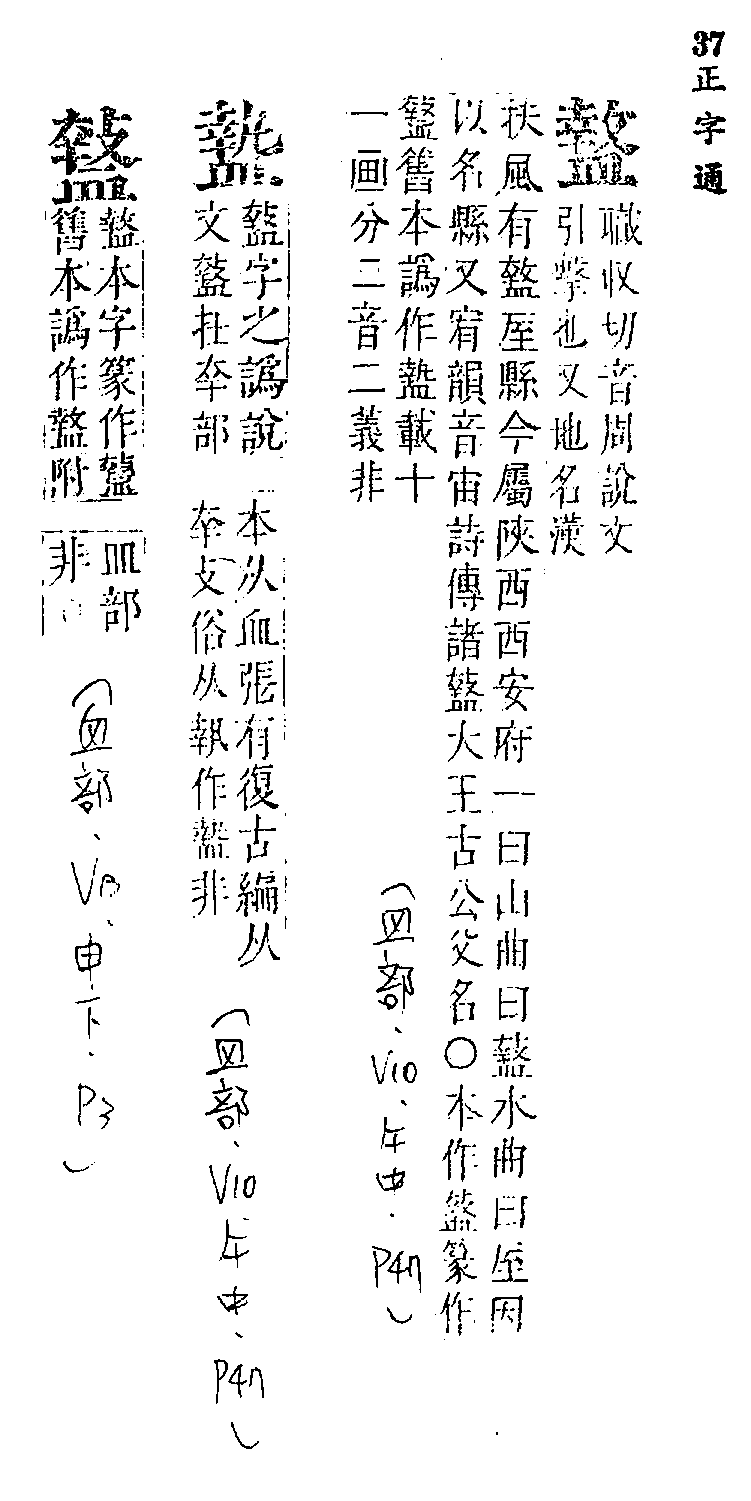 37 正字通
盩 職收切音周說文
引擊也又地名漢
扶風有盩厔縣今屬陝西西安府一曰山曲曰盩水曲曰厔因
以名縣又宥韻音宙詩傳諸盩大王古公父名○本作盩篆作
盩舊本譌作載十
一画分二音二義非
(皿部、V10、午中、P47)
盩字之譌說
文盩在㚔部
本从血張有復古編从
㚔攴俗从執作非
(皿部、V10、午中、P47)
盩本字篆作
舊本譌作附
血部
非
(血部、V8、申下、P3)